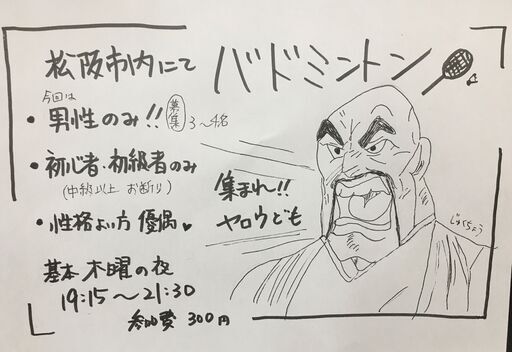 松阪市内にて
バドミントン
今回は
・男性のみ!! 募集 3〜4名
・初心者・初級者のみ
(中級以上 お断り)
・性格よい方 優偶♥
集まれ!!
ヤロウども
じゅくちょう
基本 木曜の夜
19:15〜21:30
参加費 300円